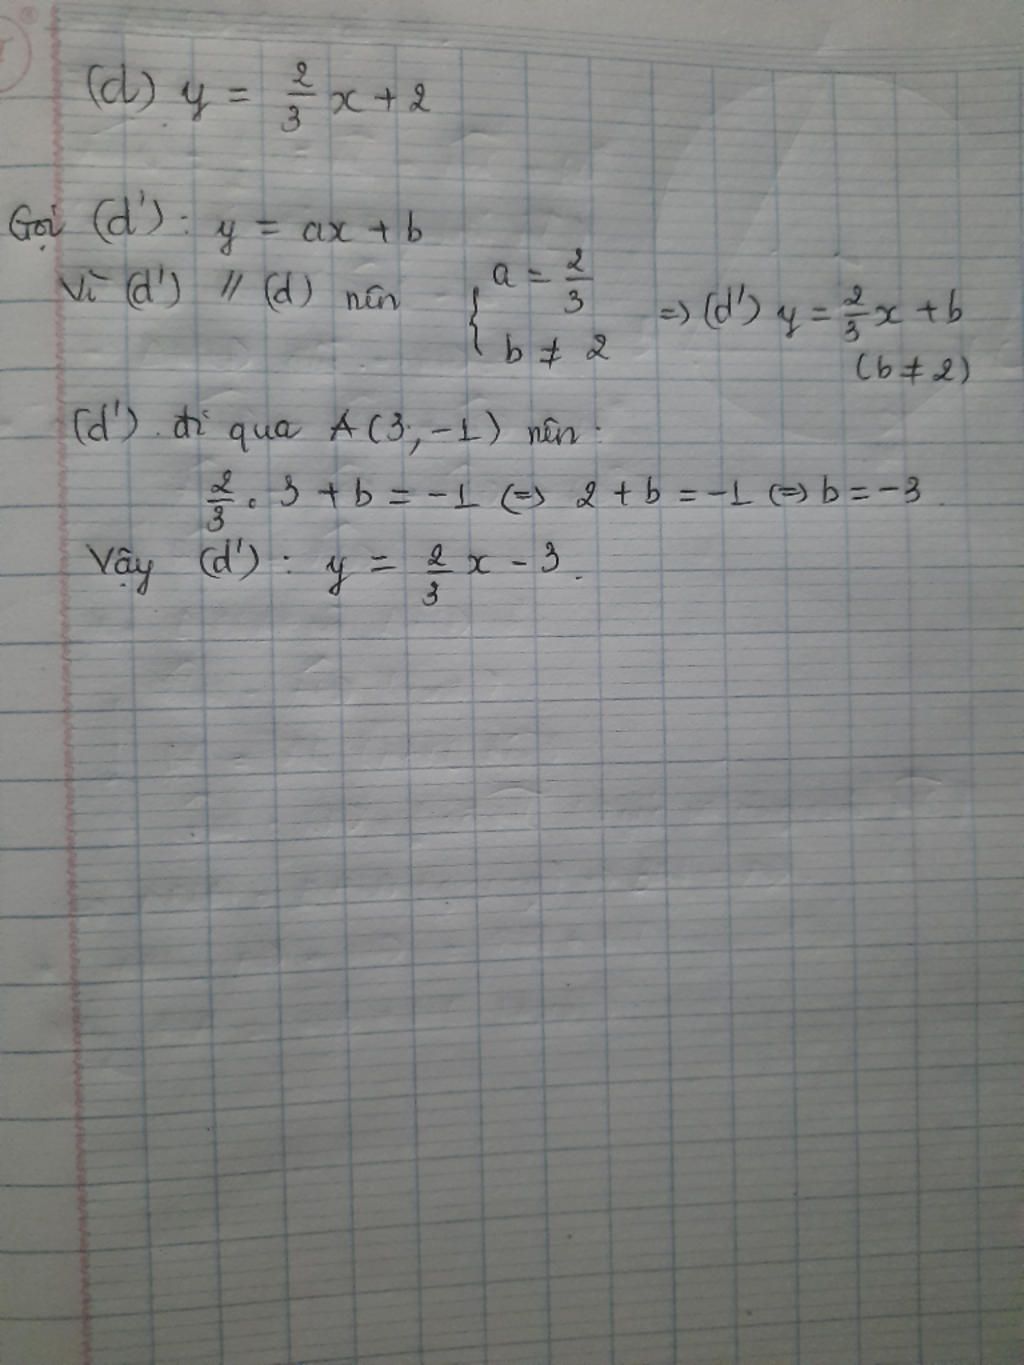 (d) y = 2/3 x + 2
Gọi (d') : y = ax + b
Vì (d') // (d) nên { a = 2/3 b ≠ 2 => (d') y = 2/3 x + b
(b ≠ 2)
(d') đi qua A(3; -1) nên :
2/3 . 3 + b = -1 <=> 2 + b = -1 <=> b = -3
Vậy (d') : y = 2/3 x - 3.